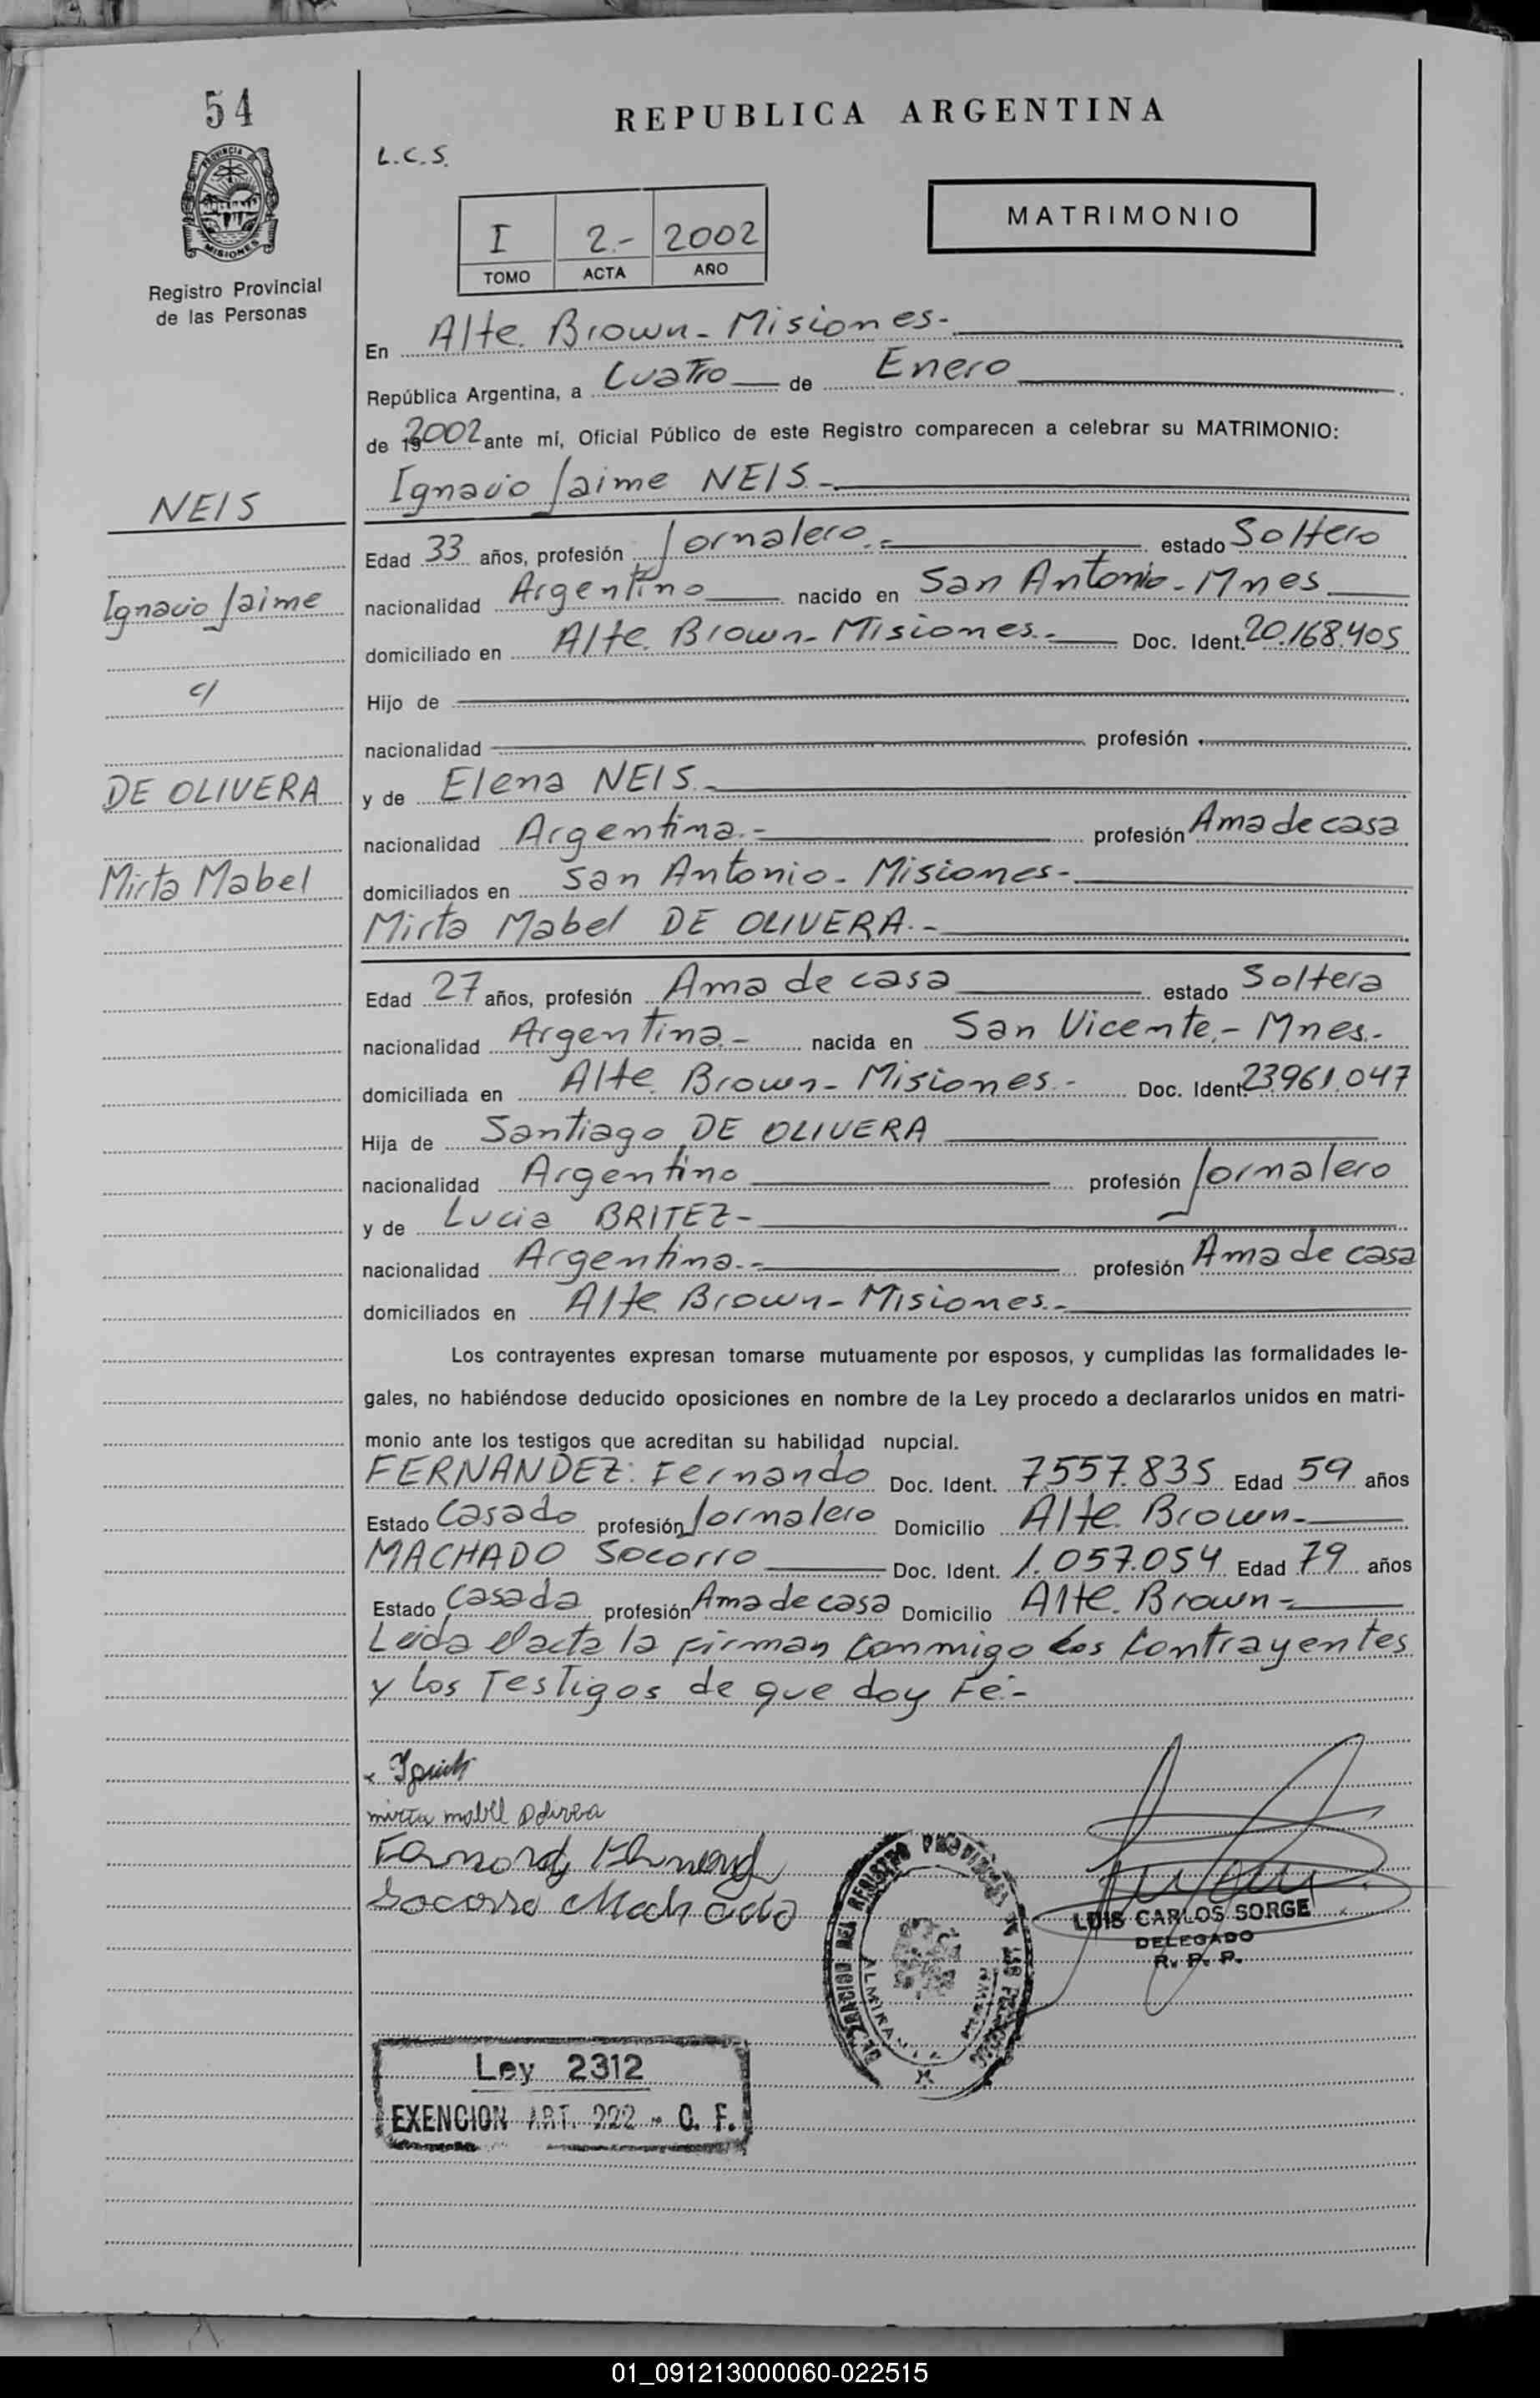 54
REPUBLICA ARGENTINA
L.C.S.
PROVINCIA DE
MISIONES
MATRIMONIO
I 2.- 2002
TOMO ACTA AÑO
Registro Provincial
de las Personas
En Alte. Brown - Misiones -
República Argentina, a Cuatro de Enero
de 2002 ante mí, Oficial Público de este Registro comparecen a celebrar su MATRIMONIO:
NEIS
Ignacio Jaime NEIS.-
Edad 33 años, profesión Jornalero.- estado Soltero
Ignacio Jaime
nacionalidad Argentino nacido en San Antonio - Mnes
domiciliado en Alte. Brown - Misiones.- Doc. Ident. 20.168.405
c/
Hijo de
nacionalidad profesión
DE OLIVERA
y de Elena NEIS.-
nacionalidad Argentina.- profesión Ama de casa
Mirta Mabel
domiciliados en San Antonio - Misiones -
Mirta Mabel DE OLIVERA.-
Edad 27 años, profesión Ama de casa estado Soltera
nacionalidad Argentina.- nacida en San Vicente.- Mnes.-
domiciliada en Alte. Brown - Misiones.- Doc. Ident. 23.961.047
Hija de Santiago DE OLIVERA
nacionalidad Argentino profesión Jornalero
y de Lucia BRITEZ -
nacionalidad Argentina.- profesión Ama de casa
domiciliados en Alte. Brown - Misiones.-
Los contrayentes expresan tomarse mutuamente por esposos, y cumplidas las formalidades le-
gales, no habiéndose deducido oposiciones en nombre de la Ley procedo a declararlos unidos en matri-
monio ante los testigos que acreditan su habilidad nupcial.
FERNANDEZ: Fernando Doc. Ident. 7.557.835 Edad 59 años
Estado Casado profesión Jornalero Domicilio Alte. Brown -
MACHADO Socorro Doc. Ident. 1.057.054 Edad 79 años
Estado Casada profesión Ama de casa Domicilio Alte. Brown -
Leida el acta la firman conmigo los contrayentes
y los Testigos de que doy Fé -
mirta mabel
Socorro Machado
LUIS CARLOS SORGE
DELEGADO
R. P. P.
Ley 2312
EXENCION ART. 222 - C. F.
01_091213000060-022515